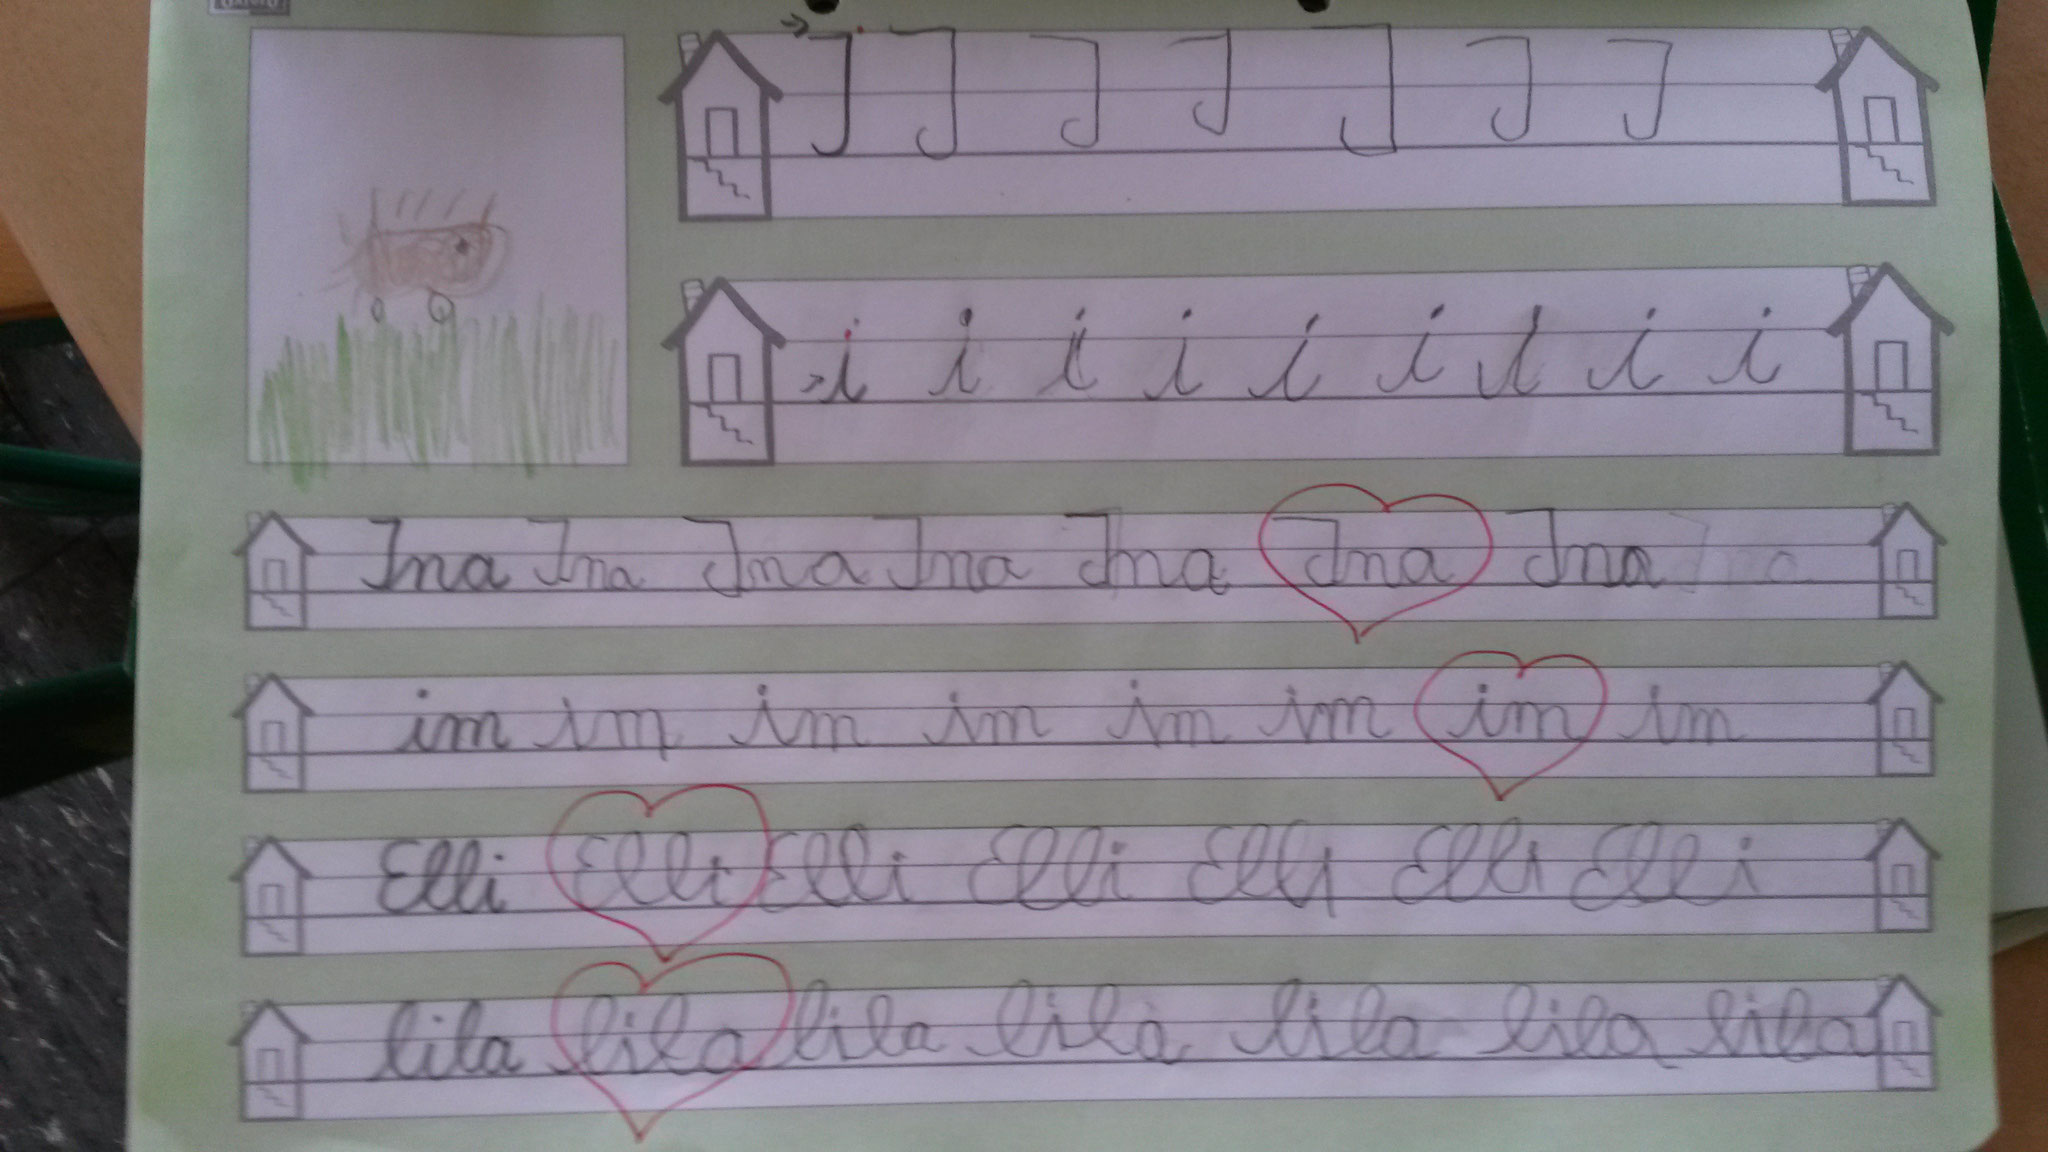 I I I I I I I
i i i i i i i i i
Ina Ina Ina Ina Ina Ina Ina Ina
im im im im im im im im
Elli Elli Elli Elli Elli Elli Elli
lila lila lila lila lila lila lila